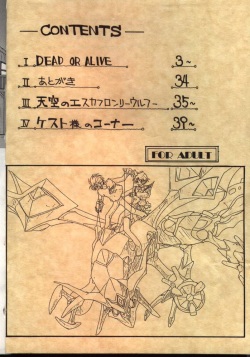 CONTENTS
I DEAD OR ALIVE 3~
II あとがき 34
III 天空のエスカフロンリーウルフ~ 35~
IV ゲスト様のコーナー 39~
FOR ADULT